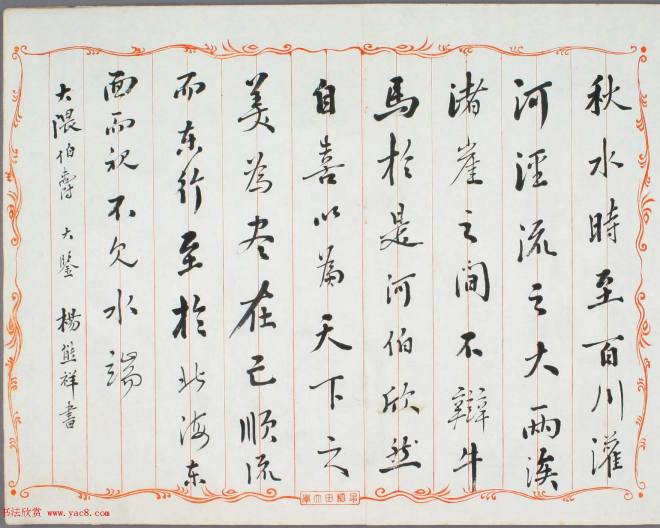 秋水時至百川灌
河涇流之大兩涘
渚崖之間不辯牛
馬於是河伯欣然
自喜以為天下之
美為盡在己順流
而東行至於北海東
面而視不見水端
大隈伯爵 大鑒 楊熊祥書
書法欣赏
www.yac8.com